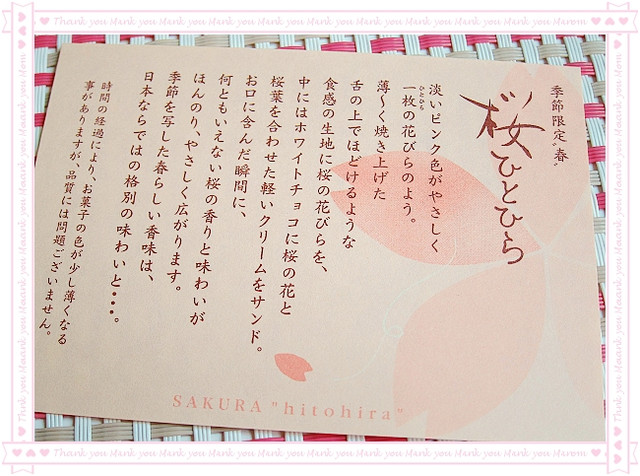 季節限定"春"
桜ひとひら
淡いピンク色がやさしく
一枚の花びらのよう。
ひとひら
薄～く焼き上げた
舌の上でほどけるような
食感の生地に桜の花びらを、
中にはホワイトチョコに桜の花と
桜葉を合わせた軽いクリームをサンド。
お口に含んだ瞬間に、
何ともいえない桜の香りと味わいが
ほんのり、やさしく広がります。
季節を写した春らしい香味は、
日本ならではの格別の味わいと・・・。
時間の経過により、お菓子の色が少し薄くなる
事がありますが、品質には問題ございません。
SAKURA "hitohira"